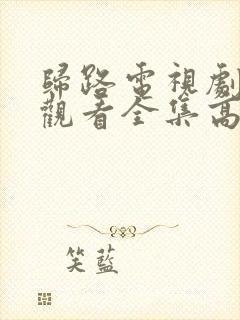 歸路電視劇
觀看全集高
笑藍